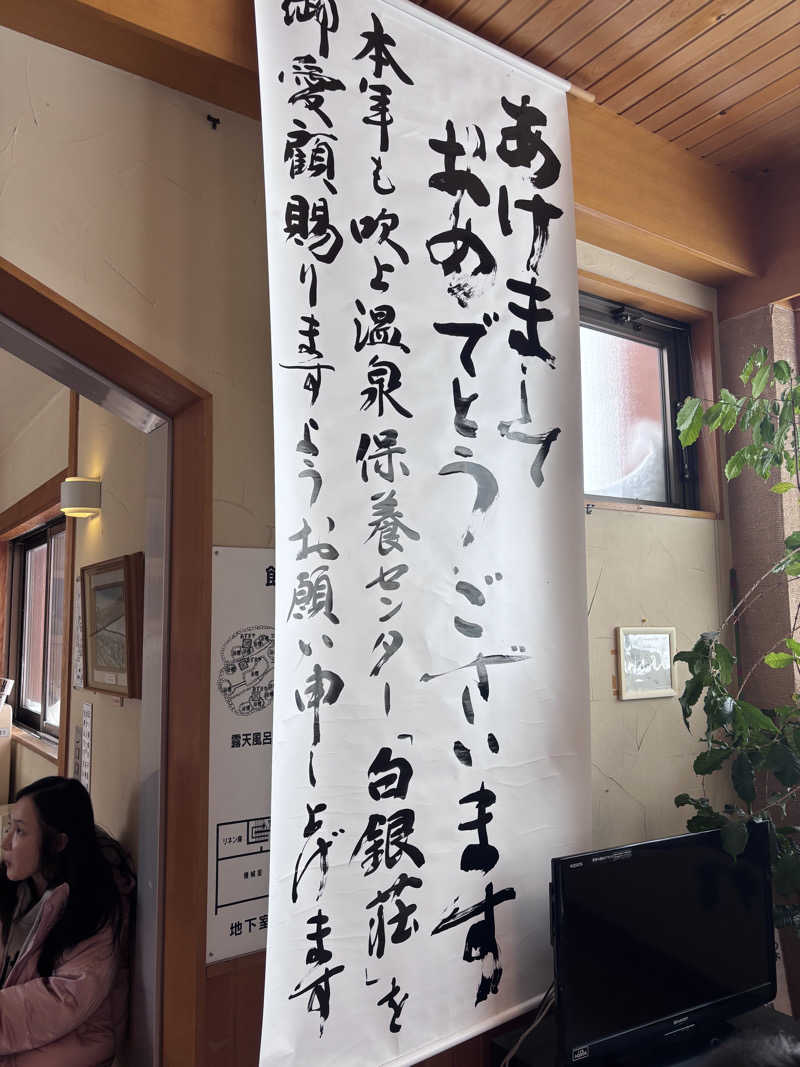 あけまして
おめでとうございます
本年も吹上温泉保養センター「白銀荘」を
御愛顧、賜りますようお願い申し上げます
露天風呂
リネン庫
機械室
地下室
SHARP